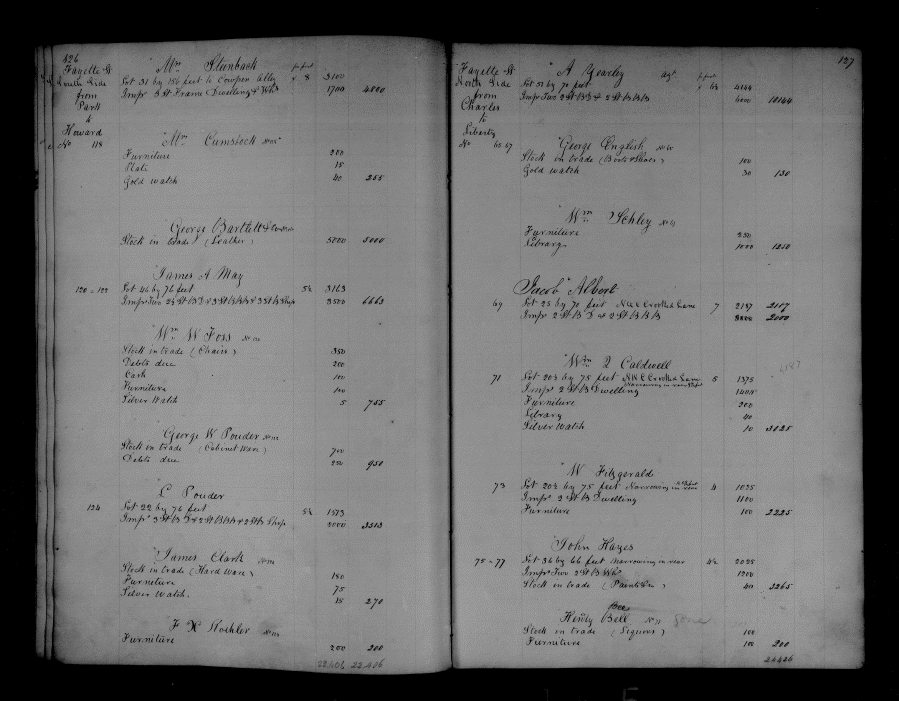 126
Fayette St
South Side
from
Park
to
Howard
No 118
Mrs Steinback
Lot 31 by 156 feet to Cowpen Alley 8 3100
Impr 3 St Frame Dwelling & Whs 1700 4800
Mrs Cumstock No 118
Furniture 200
Plate 15
Gold Watch 40 255
George Bartlett &
Stock in trade (Leather) 5000 5000
James A May
120 - 122 Lot 46 by 76 feet 3163
Imps Two 2½ St B D & 3 St B B & 3 St B Shop 3500 6663
Wm W Foss No
Stock in trade (Chairs) 350
Debts due 200
Cash 100
Furniture 100
Silver Watch 5 755
George W Pouder No
Stock in trade (Cabinet Ware) 700
Debts due 250 950
L Pouder
124 Lot 22 by 76 feet 1513
Imps 3 St B D & 2 St B B & 2 St B Shop 2000 3513
James Clark No
Stock in trade (Hard Ware) 180
Furniture 75
Silver Watch 15 270
F H Koehler No
Furniture 200 200
22,406 22,406
127
Fayette St
North Side
from
Charles
to
Liberty
No 65-67
A Yearley Agt
Lot 51 by 70 feet 4144
Impr Two 2 St B D & 2 St B B B 6000 10144
George English No
Stock in trade (Boots & Shoes) 100
Gold watch 30 130
Wm Schley No
Furniture 250
Library 1000 1250
Jacob Albert
69 Lot 25 by 70 feet N W C Crooked Lane 7 2187 2187
Impr 2 St B D & 2 St B B B 2000
Wm Q Caldwell
71 Lot 20½ by 75 feet N W C Crooked Lane 5 1375
Narrowing in rear
Imps 2 St B Dwelling 1400
Furniture 200
Library 40
Silver Watch 10 3025
W Fitzgerald
73 Lot 20½ by 75 feet Narrowing in rear 4 1025
Imps 2 St B Dwelling 1100
Furniture 100 2225
John Hayes
75 - 77 Lot 36 by 66 feet Narrowing in rear 2025
Imps Two 2 St B Whs 1200
Stock in trade (Paints &c) 40 3265
Henry Bell No 77 gone
Stock in trade (Liquors) 100
Furniture 100 200
24426